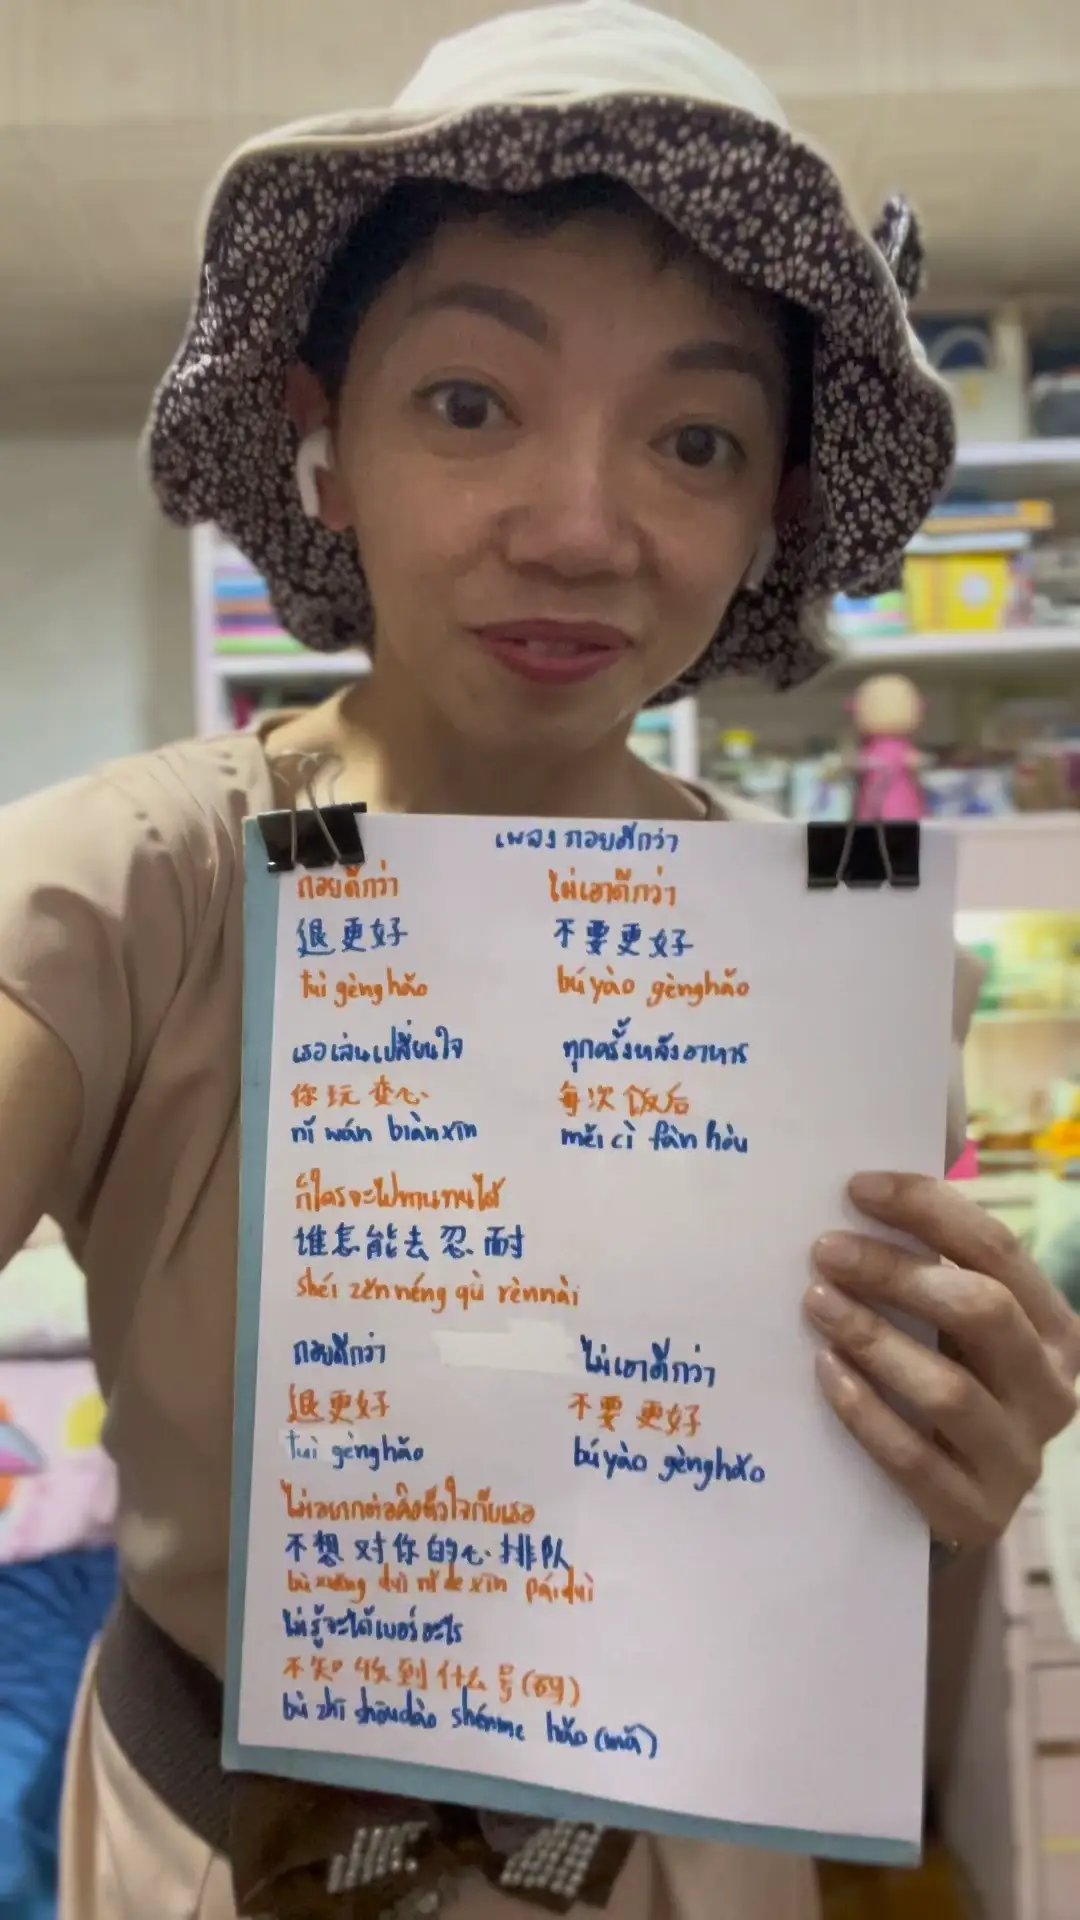 เพลง ถอยดีกว่า
ถอยดีกว่า
退更好
tuì gènghǎo
ไม่เอาดีกว่า
不要更好
búyào gènghǎo
เธอเล่นเปลี่ยนใจ
你玩变心
nǐ wán biànxīn
ทุกครั้งหลังอาหาร
每次饭后
měi cì fàn hòu
ก็ใครจะไปทานทนได้
谁怎能去忍耐
shéi zěn néng qù rěnnài
ถอยดีกว่า
退更好
tuì gènghǎo
ไม่เอาดีกว่า
不要更好
búyào gènghǎo
ไม่อยากต่อคิวหัวใจกับเธอ
不想对你的心排队
bù xiǎng duì nǐ de xīn páiduì
ไม่รู้จะได้เบอร์อะไร
不知收到什么号(码)
bù zhī shōudào shénme hǎo (mǎ)